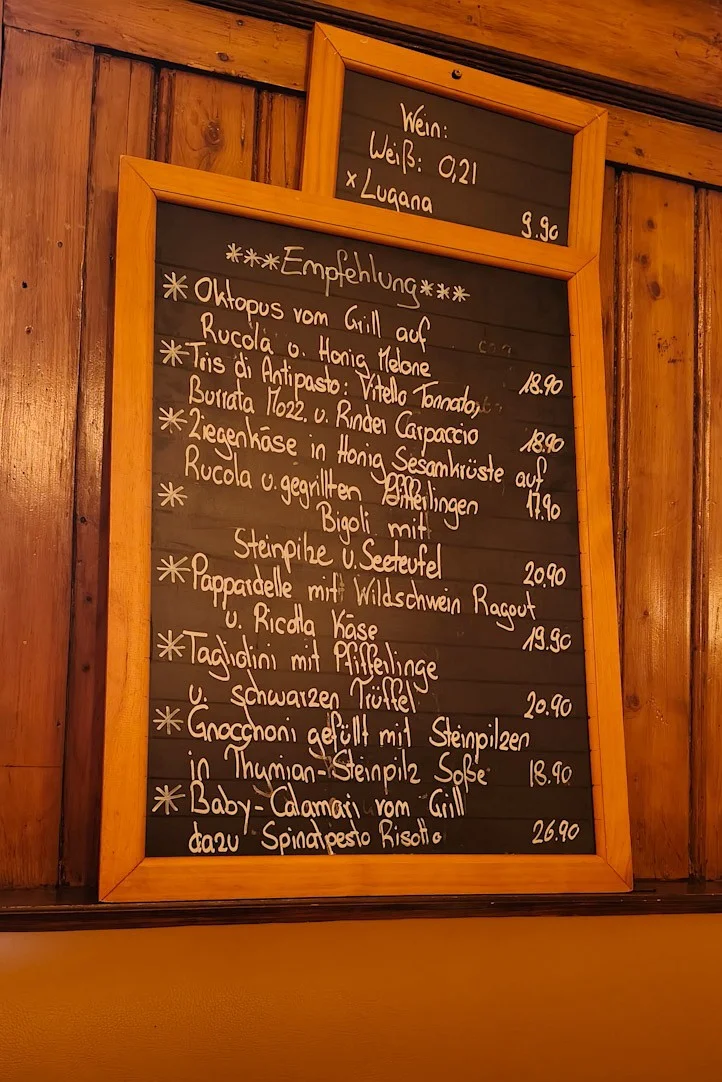 Wein:
Weiß: 0,2l
x Lugana
9.90
***Empfehlung***
* Oktopus vom Grill auf
Rucola u. Honig Melone 18.90
* Tris di Antipasto: Vitello Tonnato,
Burrata Mozz. u. Rinder Carpaccio 18.90
* Ziegenkäse in Honig Sesamkrüste auf
Rucola u. gegrillten Pfifferlingen 17.90
* Bigoli mit
Steinpilze u. Seeteufel 20.90
* Pappardelle mit Wildschwein Ragout
u. Ricotta Käse 19.90
* Tagliolini mit Pfifferlinge
u. schwarzen Trüffel 20.90
* Gnocchoni gefüllt mit Steinpilzen
in Thymian-Steinpilz Soße 18.90
* Baby-Calamari vom Grill
dazu Spinatpesto Risotto 26.90